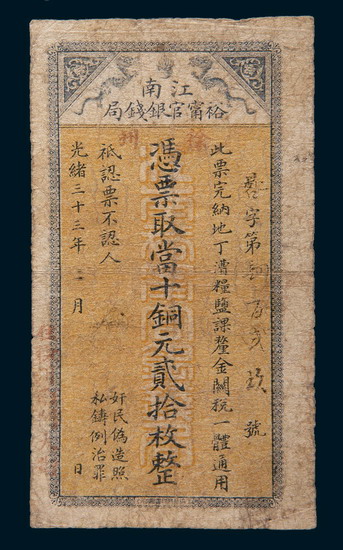 江南
裕甯官銀錢局
徐州
字第 百 號
此票完納地丁漕糧鹽課釐金關稅一體通用
憑票取當十銅元貳拾枚整
祇認票不認人
光緒三十三年 月 日
奸民偽造照
私鑄例治罪